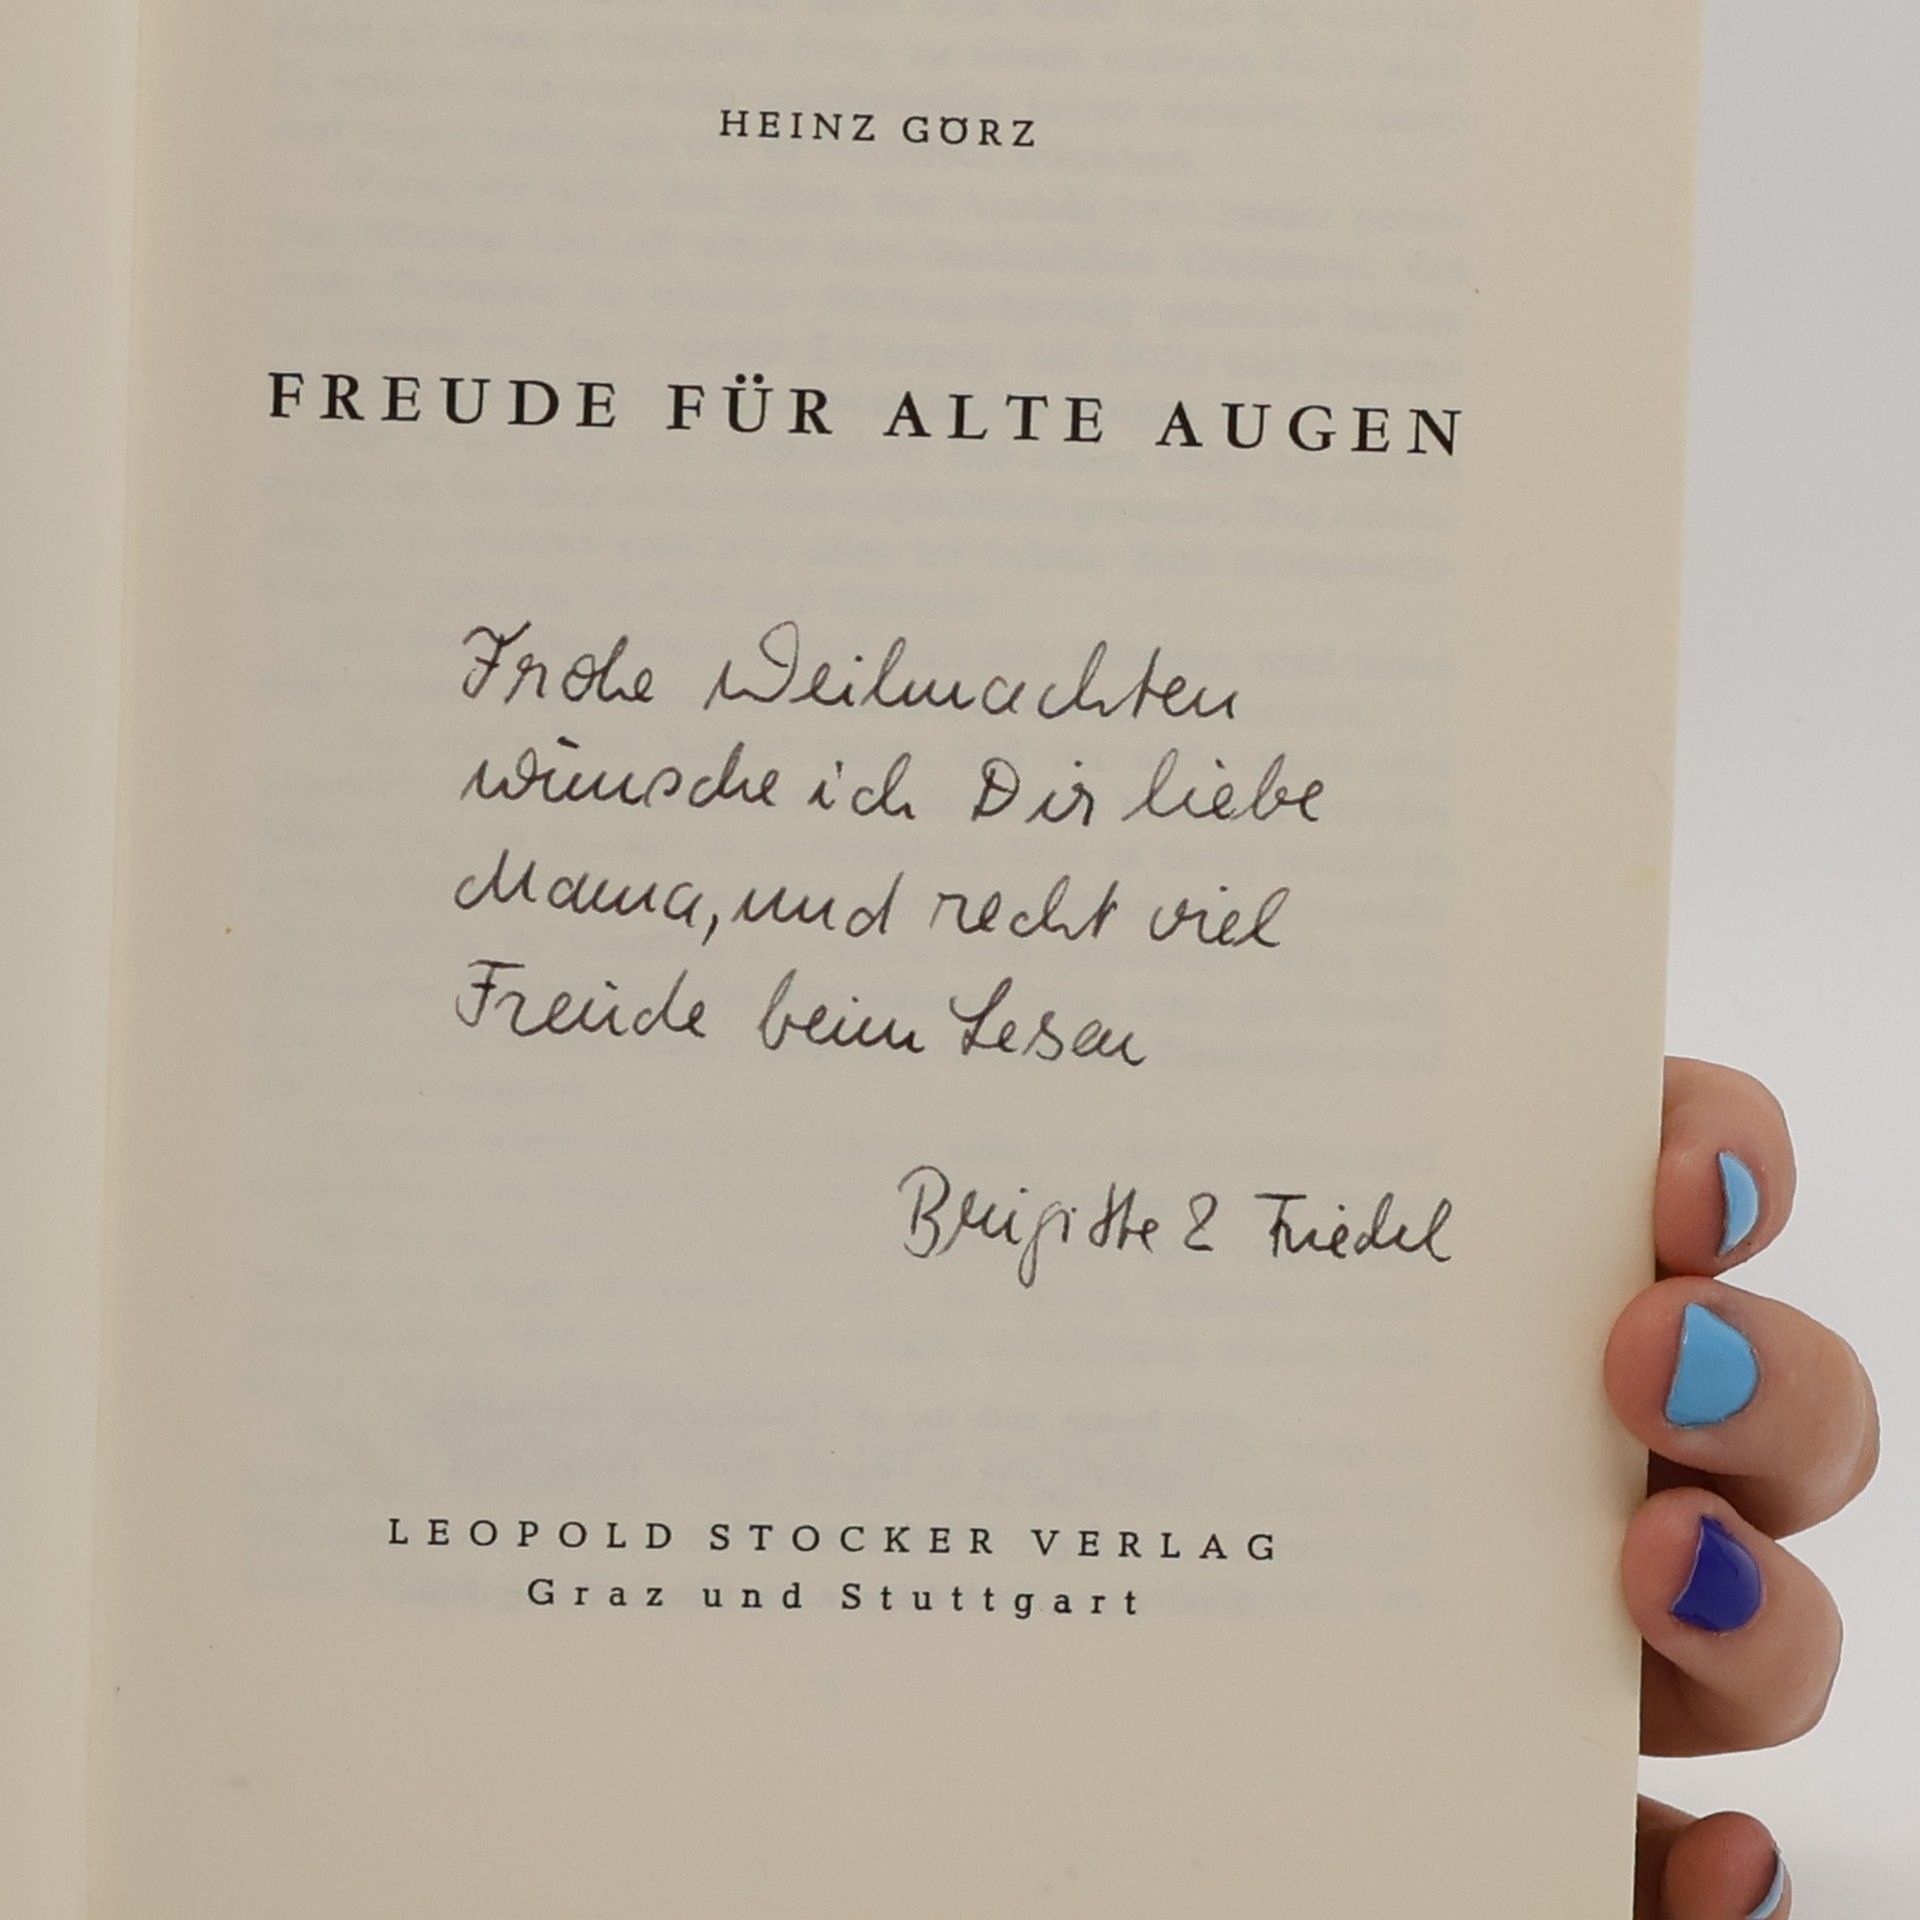 HEINZ GÖRZ
FREUDE FÜR ALTE AUGEN
Frohe Weihnachten
wünsche ich Dir liebe
Mama, und recht viel
Freude beim Lesen
Brigitte & Friedel
LEOPOLD STOCKER VERLAG
Graz und Stuttgart